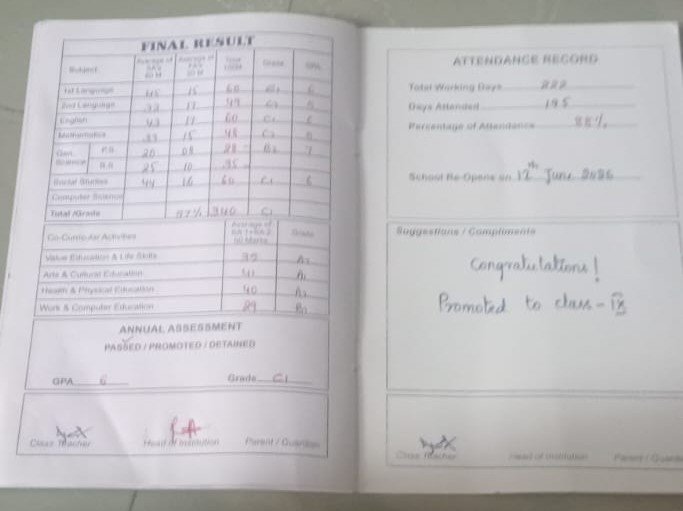 FINAL RESULT
Subject Average of Average of Total Grade GPA
1st Language 45 15 60 6
2nd Language 17 49
English 43 17 60 C1 6
Mathematics 33 15 48 C2
Gen. Science P.S. 20 08 28 7
B.S. 25 10 35
Social Studies 44 16 60 C1 6
Computer Science
Total /Grade 57% 340 C1
Co-Curricular Activities Average of Grade
Value Education & Life Skills
Arts & Cultural Education
Health & Physical Education 40
Work & Computer Education 29
ANNUAL ASSESSMENT
PASSED / PROMOTED / DETAINED
GPA 6 Grade C1
Class Teacher Head of Institution Parent / Guardian
ATTENDANCE RECORD
Total Working Days 222
Days Attended 195
Percentage of Attendance 88%
School Re-Opens on 12th June 2026
Suggestions / Compliments
Congratulations!
Promoted to class - IX
Class Teacher Head of Institution Parent / Guardian